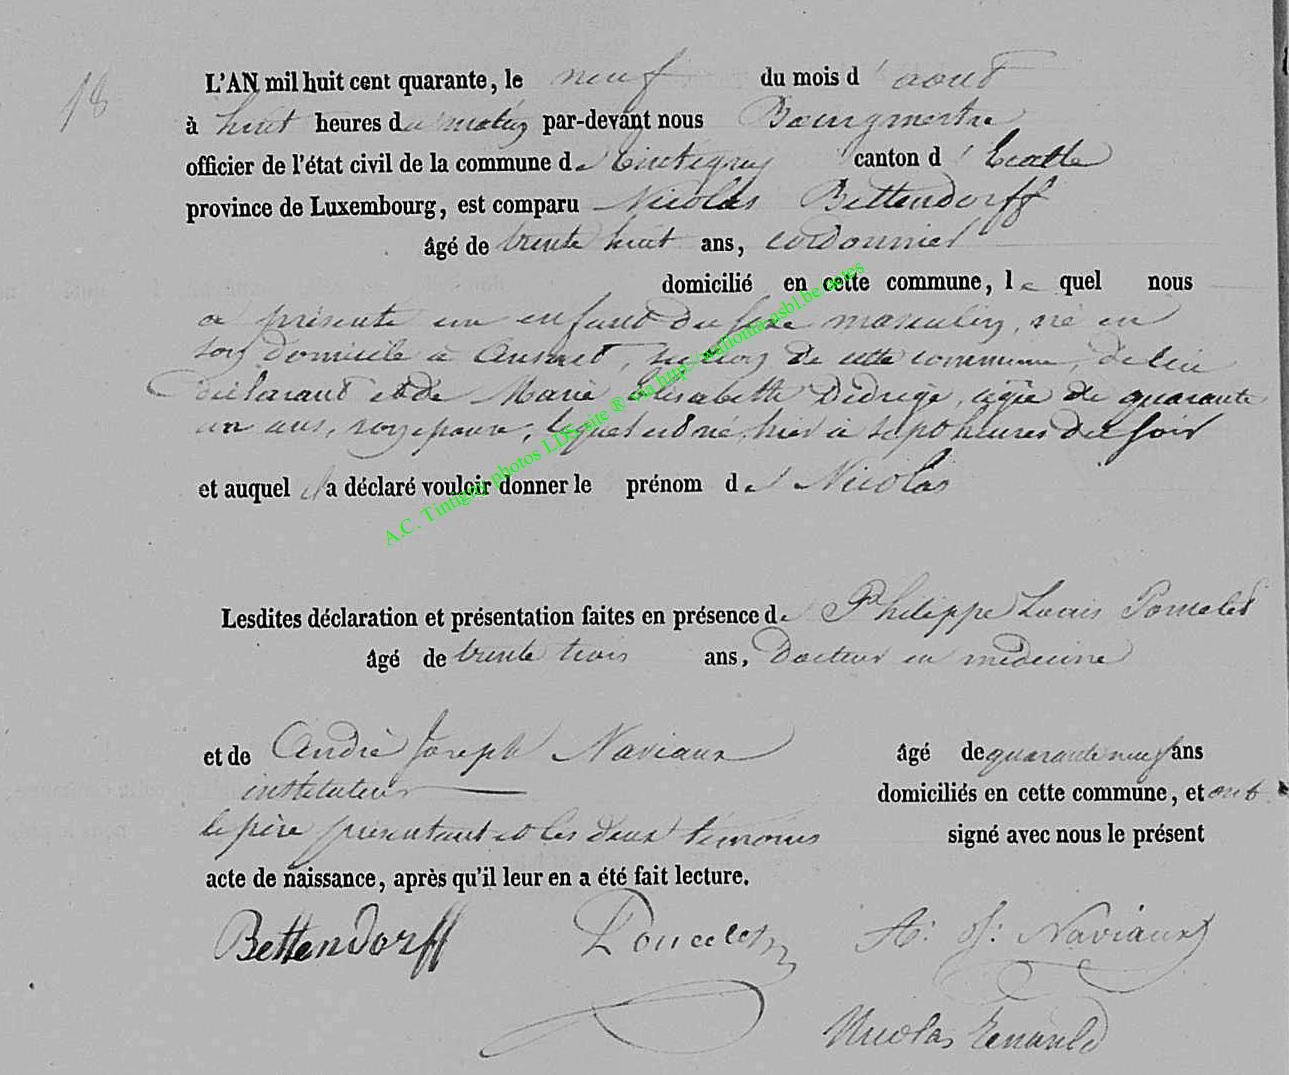 18
L'AN mil huit cent quarante, le neuf du mois d'aout
à huit heures du matin par-devant nous Bourgmestre
officier de l'état civil de la commune de Tintigny canton d'Etalle
province de Luxembourg, est comparu Nicolas Bettendorff
âgé de trente huit ans, cordonnier
domicilié en cette commune, lequel nous
a présenté un enfant du sexe masculin, né en
son domicile à Ansart, section de cette commune, de lui
déclarant et de Marie Elisabette Dedrige, agée de quarante
un ans, son épouse, lequel est né hier à sept heures du soir
et auquel il a déclaré vouloir donner le prénom de Nicolas
Lesdites déclaration et présentation faites en présence de Philippe Louis Poncelet
âgé de trente trois ans, Docteur en médecine
et de André Joseph Naviaux âgé de quarante neuf ans
instituteur domiciliés en cette commune, et ont
le père présentant et les deux témoins signé avec nous le présent
acte de naissance, après qu'il leur en a été fait lecture.
Bettendorff Poncelet A: J: Naviaux
Nicolas Renauld
A.C. Tintigny photos LDS site ® via http://wallonia-asbl.be/actes